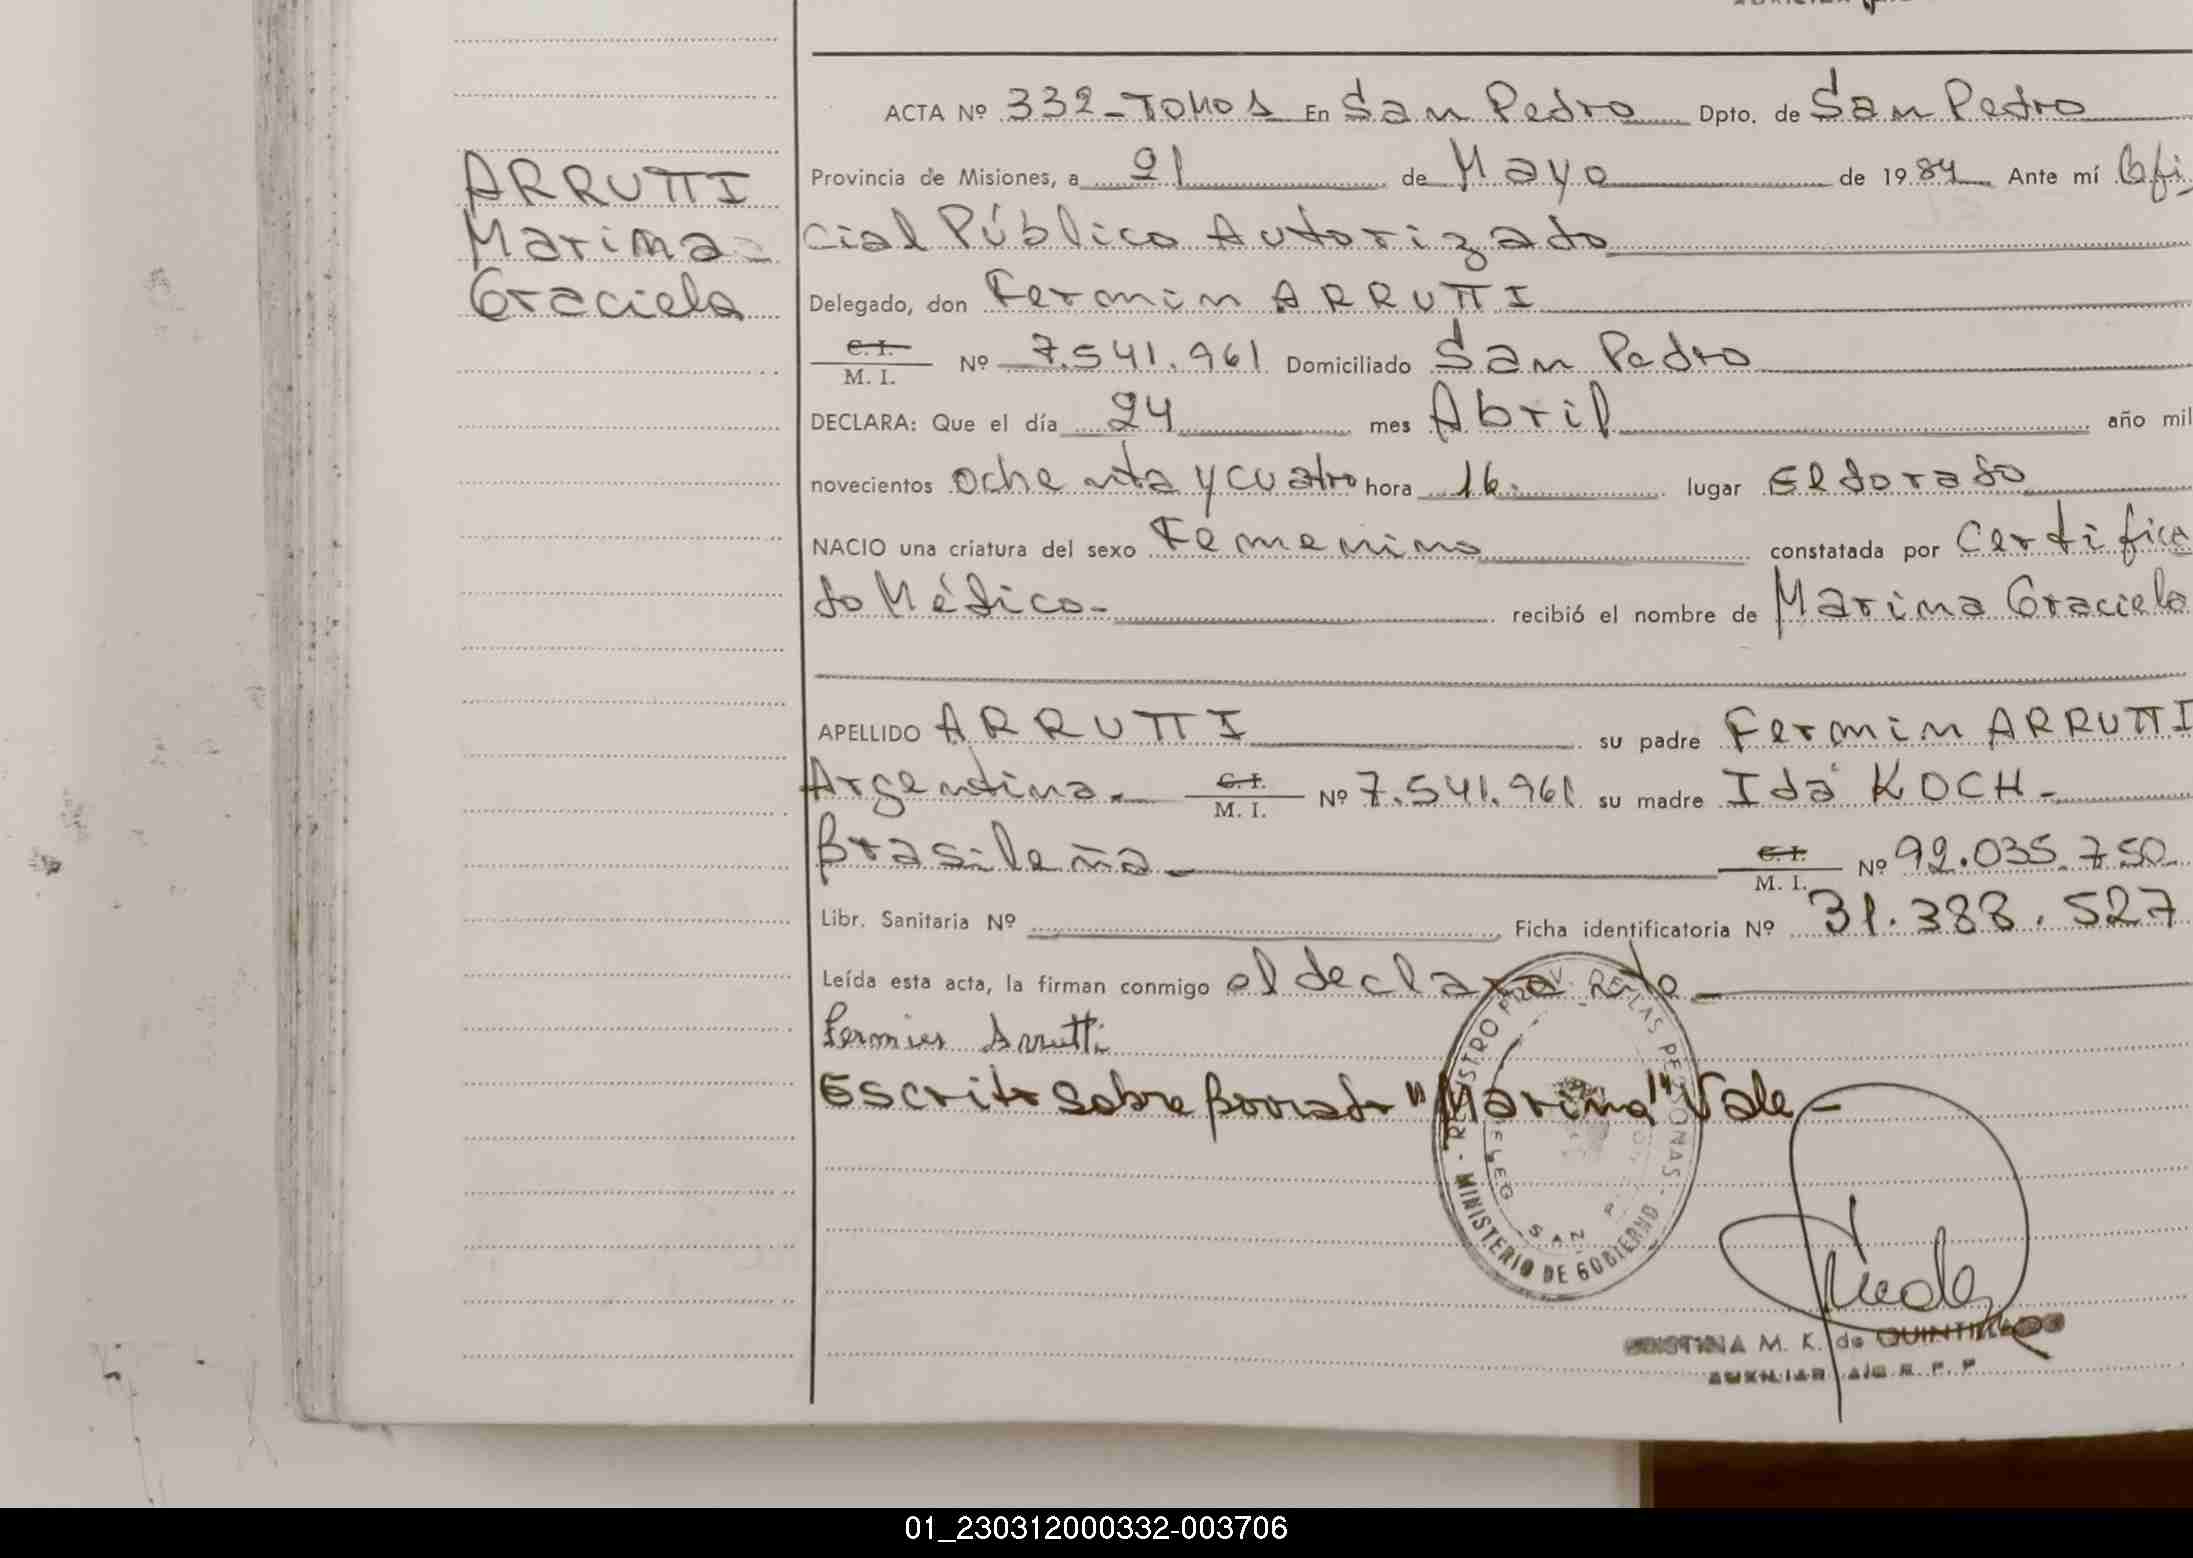 ARRUTTI
Marina=
Graciela
ACTA Nº 332-TOMO 1 En San Pedro Dpto. de San Pedro
Provincia de Misiones, a 21 de Mayo de 1984 Ante mí Ofi
cial Público Autorizado
Delegado, don Fermin ARRUTTI
C. I.
M. I. Nº 7.541.961 Domiciliado San Pedro
DECLARA: Que el día 24 mes Abril año mil
novecientos ochenta y cuatro hora 16. lugar Eldorado
NACIO una criatura del sexo Femenino constatada por Certifica
do Médico- recibió el nombre de Marina Graciela
APELLIDO ARRUTTI su padre Fermin ARRUTTI
Argentina.- C. I. M. I. Nº 7.541.961 su madre Ida KOCH-
Brasileña- C. I. M. I. Nº 92.035.750
Libr. Sanitaria Nº Ficha identificatoria Nº 31.388.527
Leída esta acta, la firman conmigo el declarante-
Fermin Arrutti
Escrito sobre Borrado "Marina" Vale-
REGISTRO PROV. DE LAS PERSONAS - MINISTERIO DE GOBIERNO -
DELEG SAN P
CRISTINA M. K. de QUINTILLAOS
AUXILIAR A/C R. P. P
01_230312000332-003706